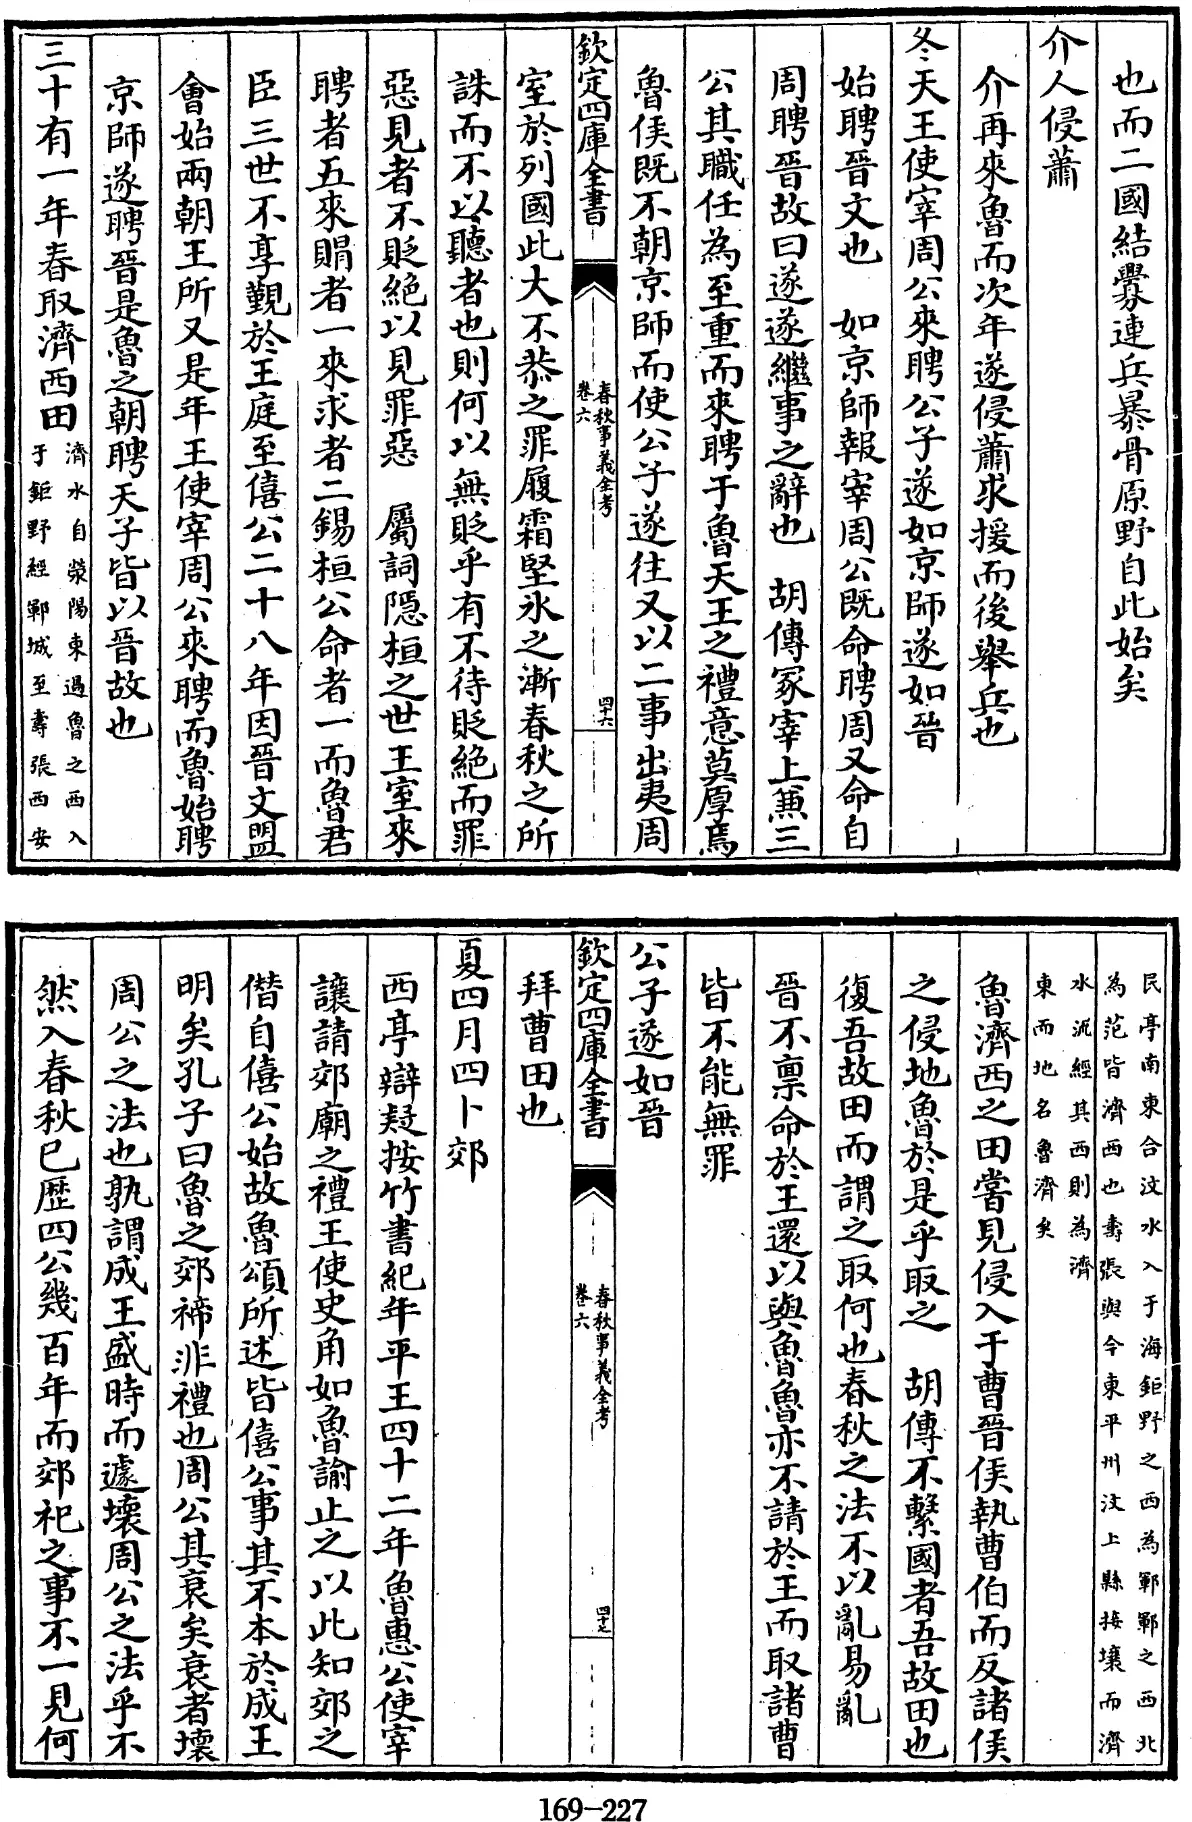 也而二國結釁連兵暴骨原野自此始矣
介人侵蕭
介再來魯而次年遂侵蕭求援而後舉兵也
冬天王使宰周公來聘公子遂如京師遂如晉
始聘晉文也　如京師報宰周公既命聘周又命自
周聘晉故曰遂遂繼事之辭也　胡傳冢宰上兼三
公其職任為至重而來聘于魯天王之禮意莫厚焉
魯侯既不朝京師而使公子遂往又以二事出夷周
欽定四庫全書
春秋事義全考
卷六
四十六
室於列國此大不恭之罪履霜堅氷之漸春秋之所
誅而不以聽者也則何以無貶乎有不待貶絕而罪
惡見者不貶絕以見罪惡　屬詞隱桓之世王室來
聘者五來賵者一來求者二錫桓公命者一而魯君
臣三世不享覲於王庭至僖公二十八年因晉文盟
會始兩朝王所又是年王使宰周公來聘而魯始聘
京師遂聘晉是魯之朝聘天子皆以晉故也
三十有一年春取濟西田
濟水自滎陽東過魯之西入
于鉅野經鄆城至壽張西安
民亭南東合汶水入于海鉅野之西為鄆鄆之西北
為范皆濟西也壽張與今東平州汶上縣接壤而濟
水流經其西則為濟
東而地名魯濟矣
魯濟西之田嘗見侵入于曹晉侯執曹伯而反諸侯
之侵地魯於是乎取之　胡傳不繫國者吾故田也
復吾故田而謂之取何也春秋之法不以亂易亂
晉不禀命於王還以與魯魯亦不請於王而取諸曹
皆不能無罪
公子遂如晉
欽定四庫全書
春秋事義全考
卷六
四十七
拜曹田也
夏四月四卜郊
西亭辯疑按竹書紀年平王四十二年魯惠公使宰
讓請郊廟之禮王使史角如魯諭止之以此知郊之
僭自僖公始故魯頌所述皆僖公事其不本於成王
明矣孔子曰魯之郊禘非禮也周公其衰矣衰者壞
周公之法也孰謂成王盛時而遽壞周公之法乎不
然入春秋已歷四公幾百年而郊祀之事不一見何
169-227